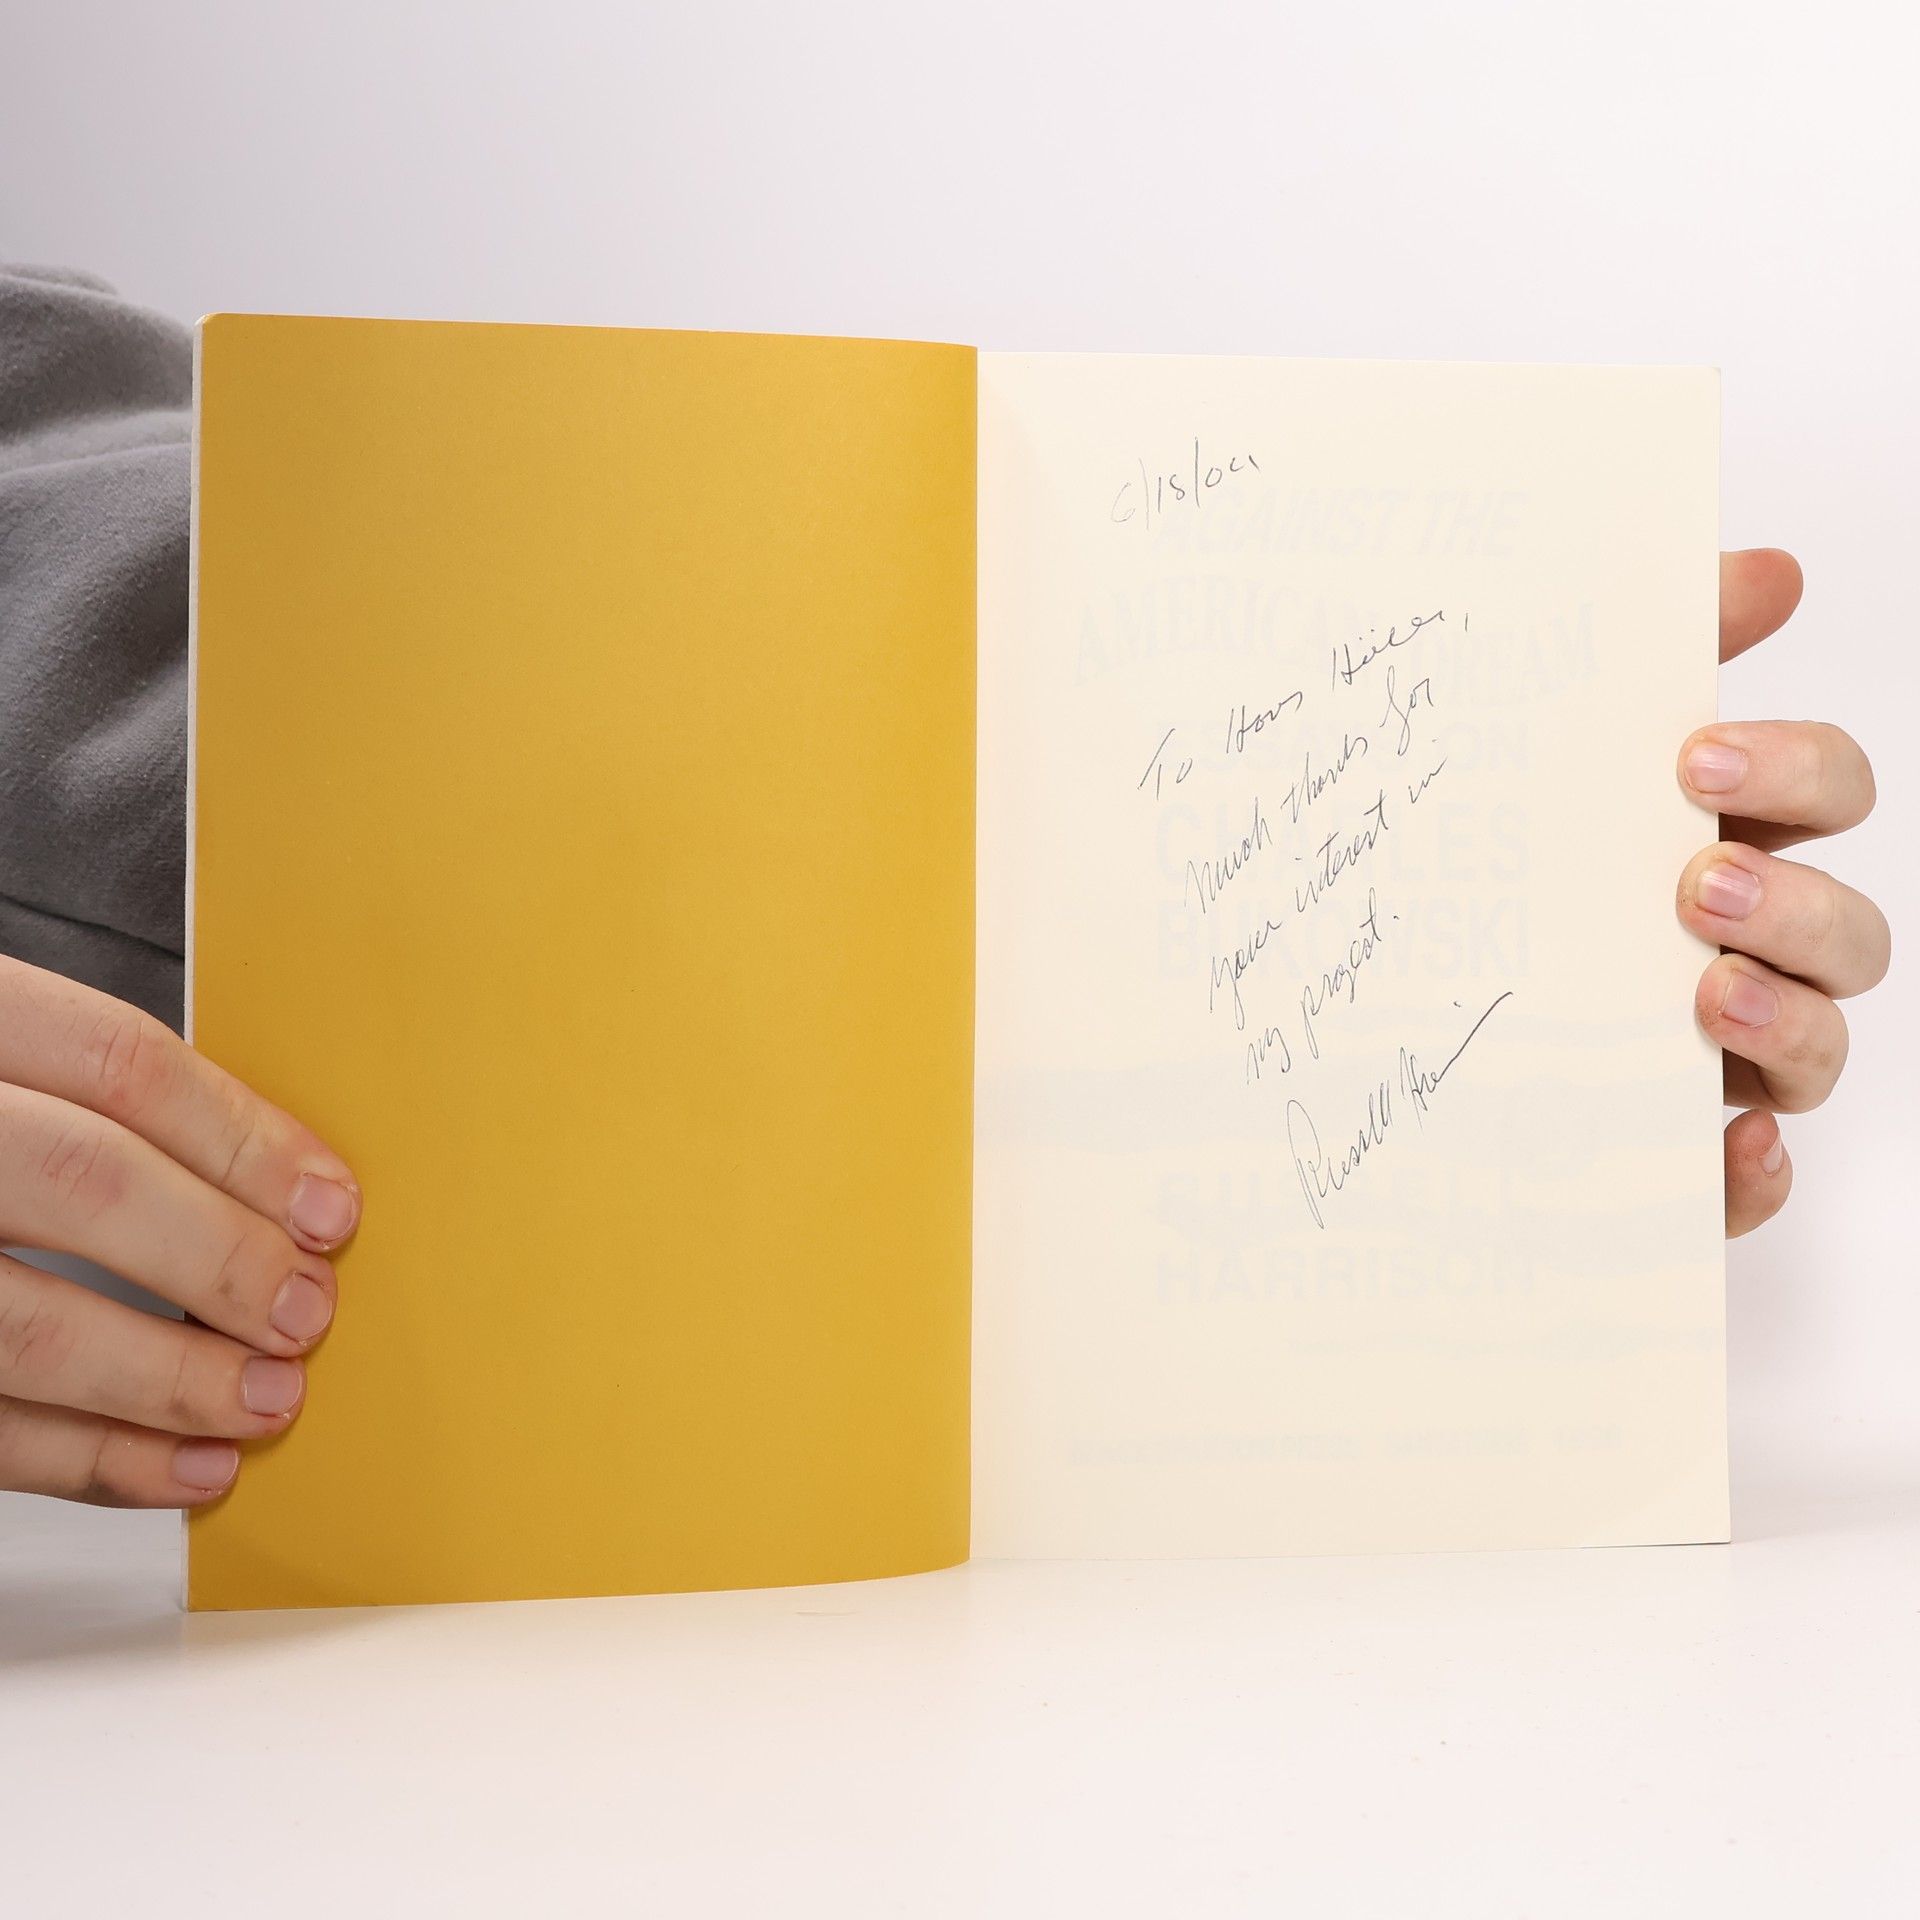 6/18/04
To Hans
Much thanks for
your interest in
my project.
Russell Harrison
AGAINST THE
AMERICAN DREAM
ESSAYS ON
CHARLES
BUKOWSKI
RUSSELL
HARRISON